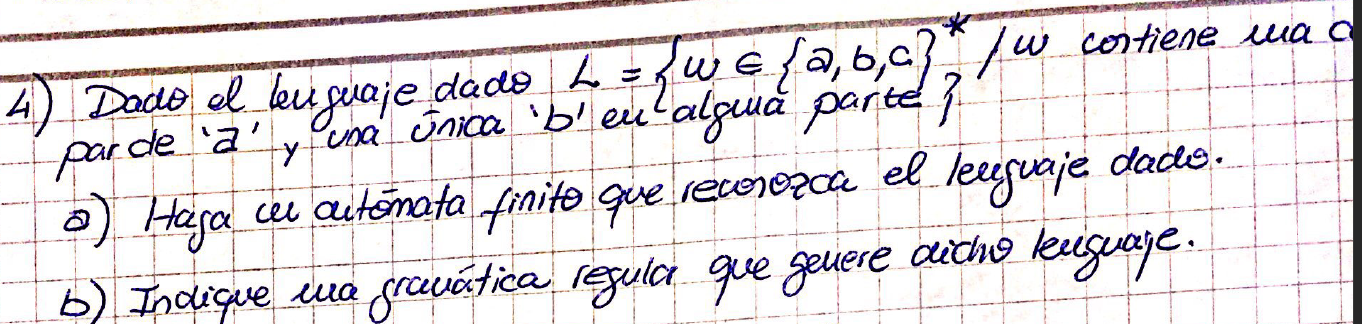 4) Dado el lenguaje dado L = {w ∈ {a,b,c}* / w contiene una c
par de 'a' y una única 'b' en alguna parte}
a) Haga un autómata finito que reconozca el lenguaje dado.
b) Indique una gramática regular que genere dicho lenguaje.